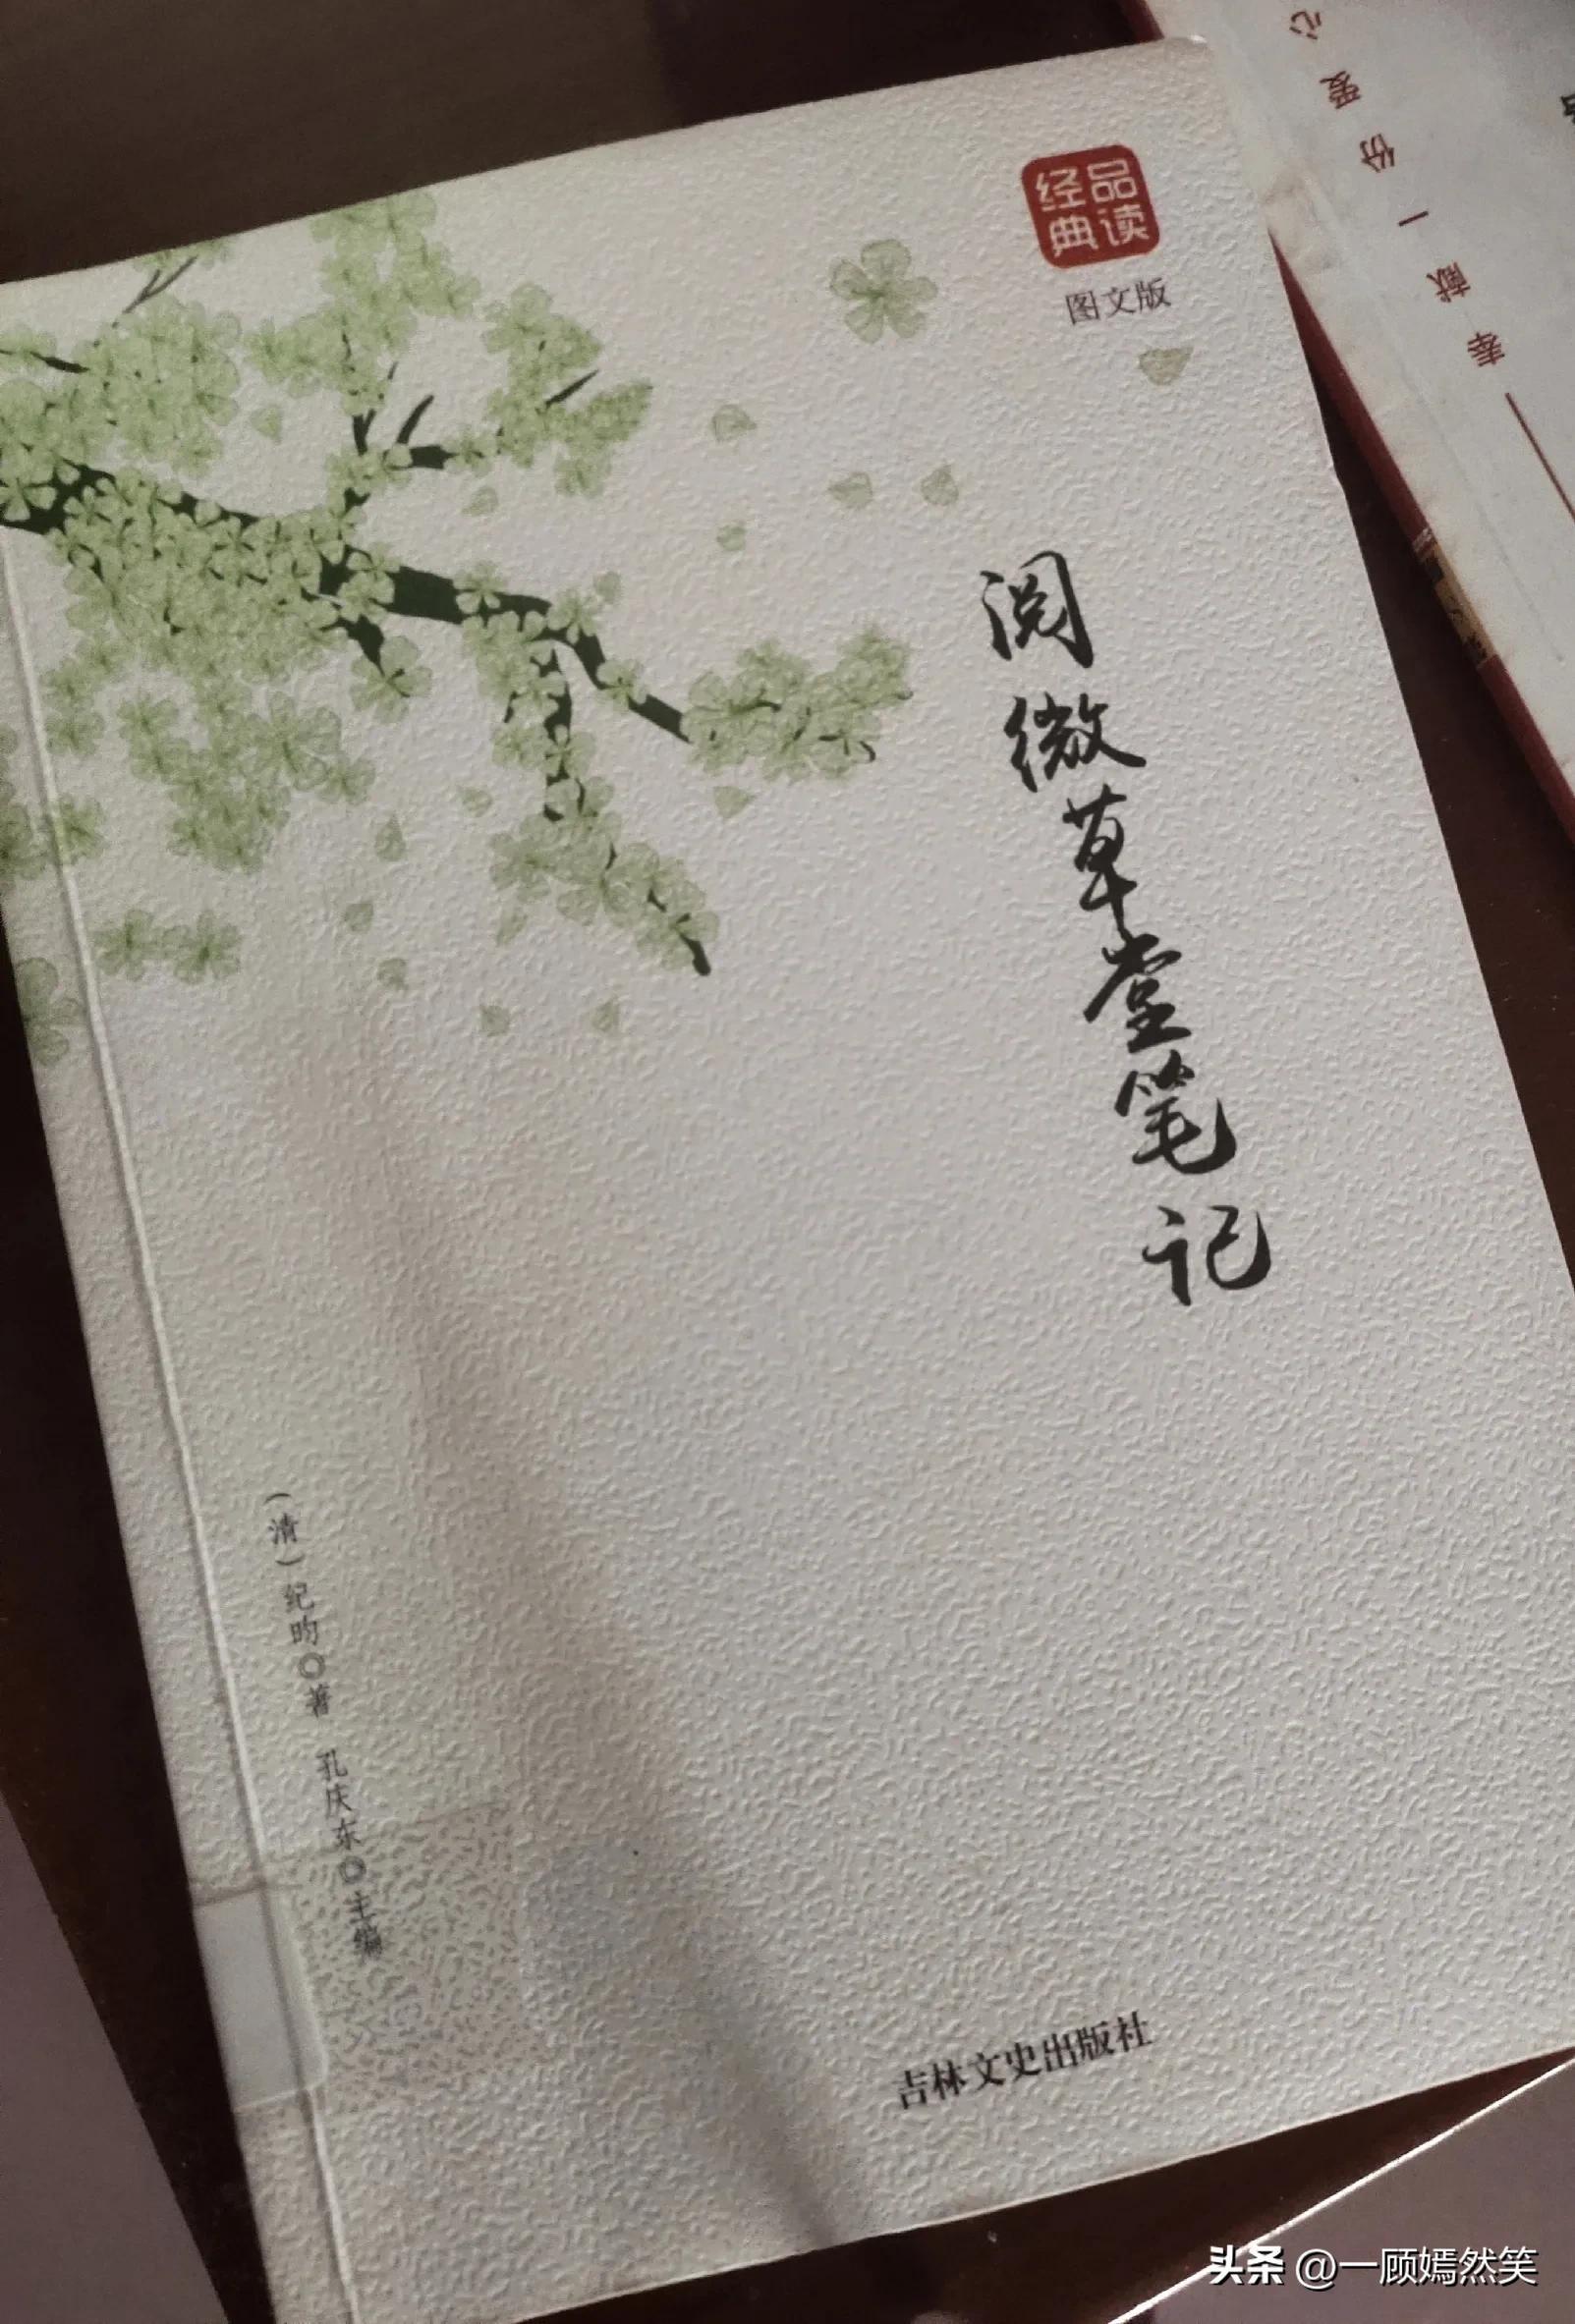 品读
经典
图文版
阅微草堂笔记
(清)纪昀○著 孔庆东○主编
吉林文史出版社
——奉献一份爱心
头条 @一顾嫣然笑